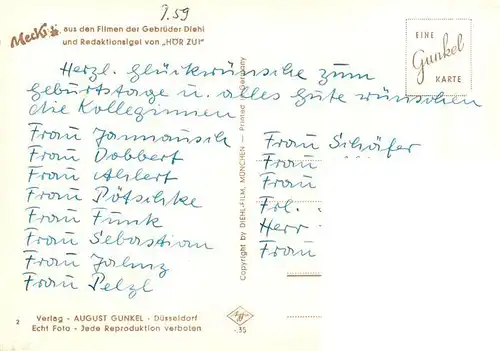 7.59
Mecki aus den Filmen der Gebrüder Diehl
und Redaktionsigel von „HÖR ZU!"
EINE
Gunkel
KARTE
Herzl. Glückwünsche zum
Geburtstage u. alles Gute wünschen
die Kolleginnen
Frau Jannausch
Frau Dobbert
Frau Ahlert
Frau Pötschke
Frau Funk
Frau Sebastian
Frau Jahnz
Frau Pelzl
Frau Schäfer
Frau
Frau
Frl.
Herr
Frau
Copyright by DIEHL-FILM, MÜNCHEN - Printed Germany
2
Verlag - AUGUST GUNKEL - Düsseldorf
Echt Foto - Jede Reproduktion verboten
Agfa
-.35